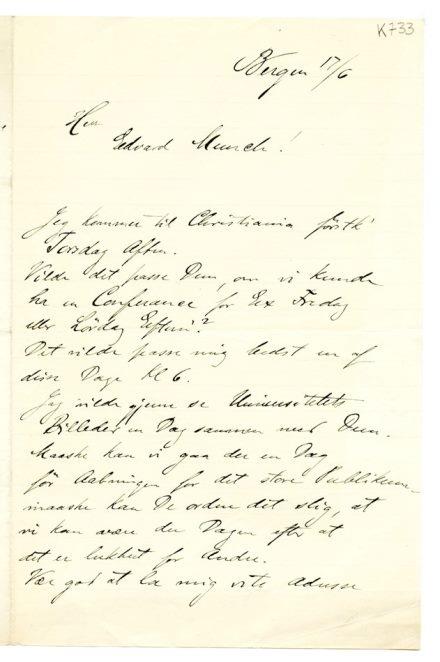 K733
Bergen 17/6
Herr
Edvard Munch!
Jeg kommer til Christiania förstk
Torsdag Aften.
Vilde det passe Dem, om vi kunde
ha en Conference for Ex Fredag
eller Lördag Efterm?
Det vilde passe mig bedst en af
disse Dage Kl 6.
Jeg vilde gjerne se Universitetets
Billeder en Dag sammen med Dem.
Maaske kan vi gaa der en Dag
för Aabningen for det store Publikum
maaske kan De ordne det slig, at
vi kan være der Dagen efter at
det er lukket for Andre.
Vær god at la mig vite Adresse